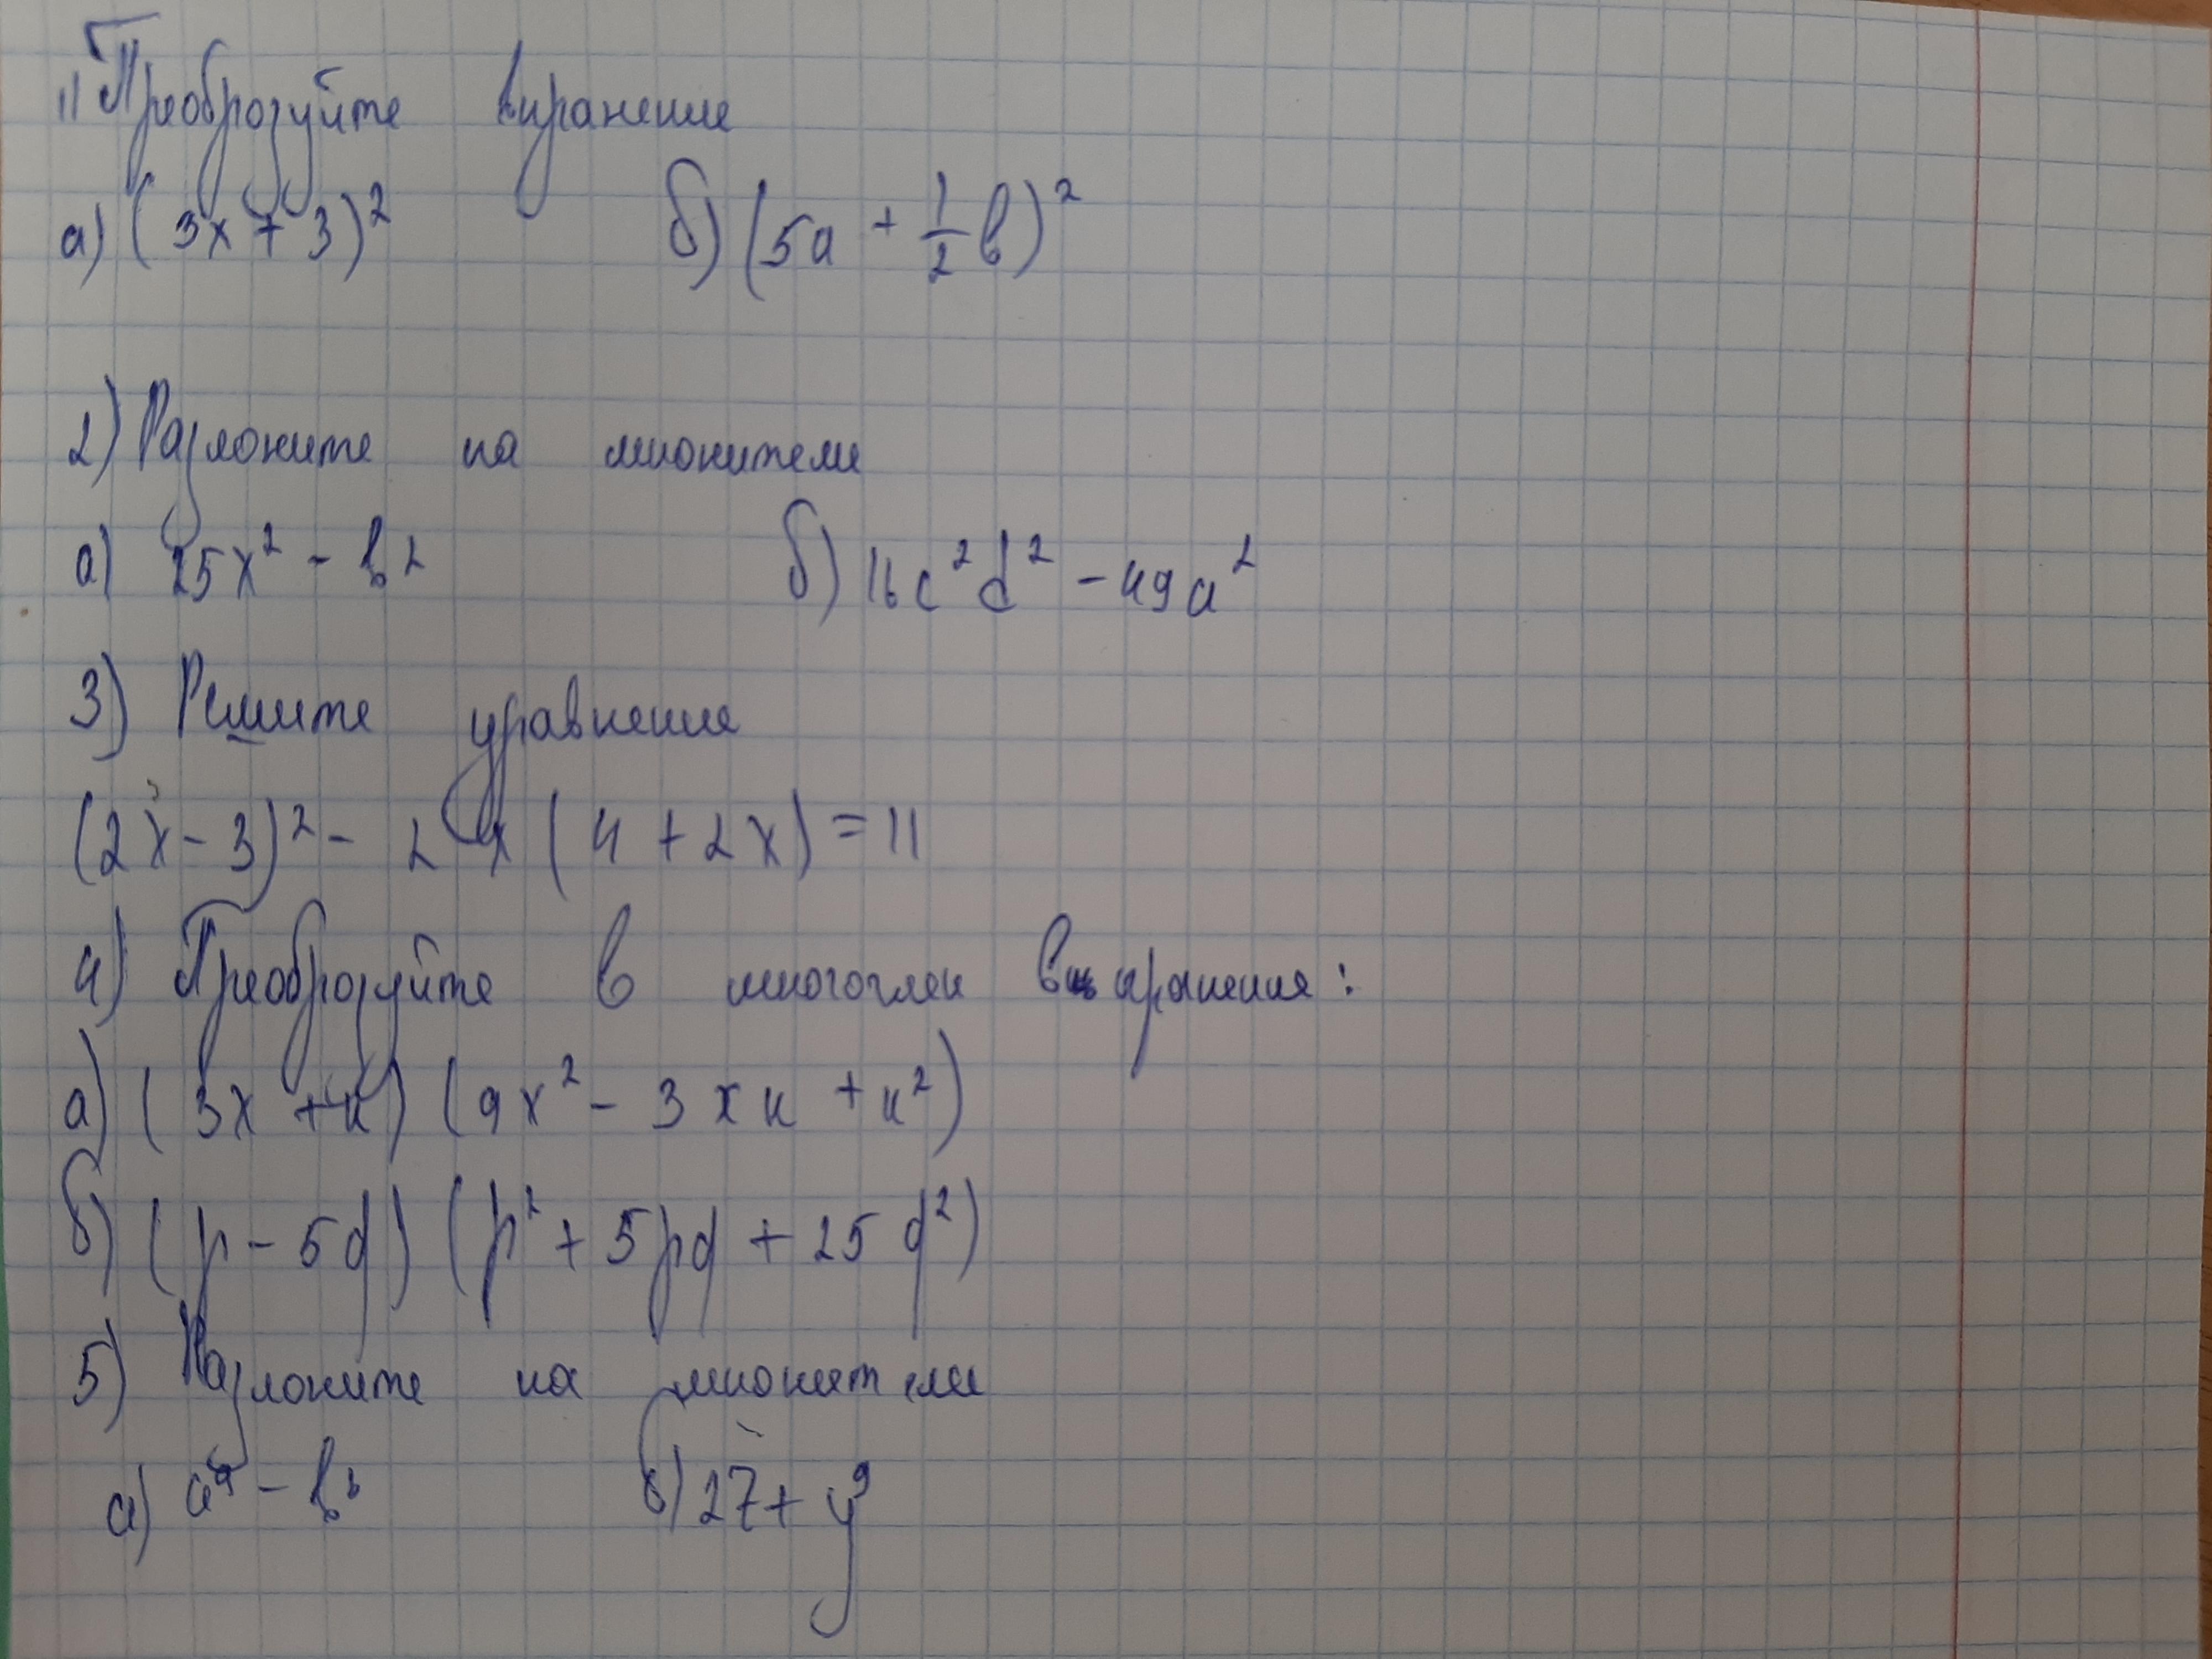 1) Преобразуйте выражение
а) (3x + 3)² б) (5a + 1/2 b)²
2) Разложите на множители
а) 25x² - b² б) 16c²d² - 49a²
3) Решите уравнение
(2x - 3)² - 2x(4 + 2x) = 11
4) Преобразуйте в многочлен выражения:
а) (3x + к) (9x² - 3xк + к²)
б) (p - 5q) (p² + 5pq + 25q²)
5) Разложите на множители
а) б) 27 + y⁹